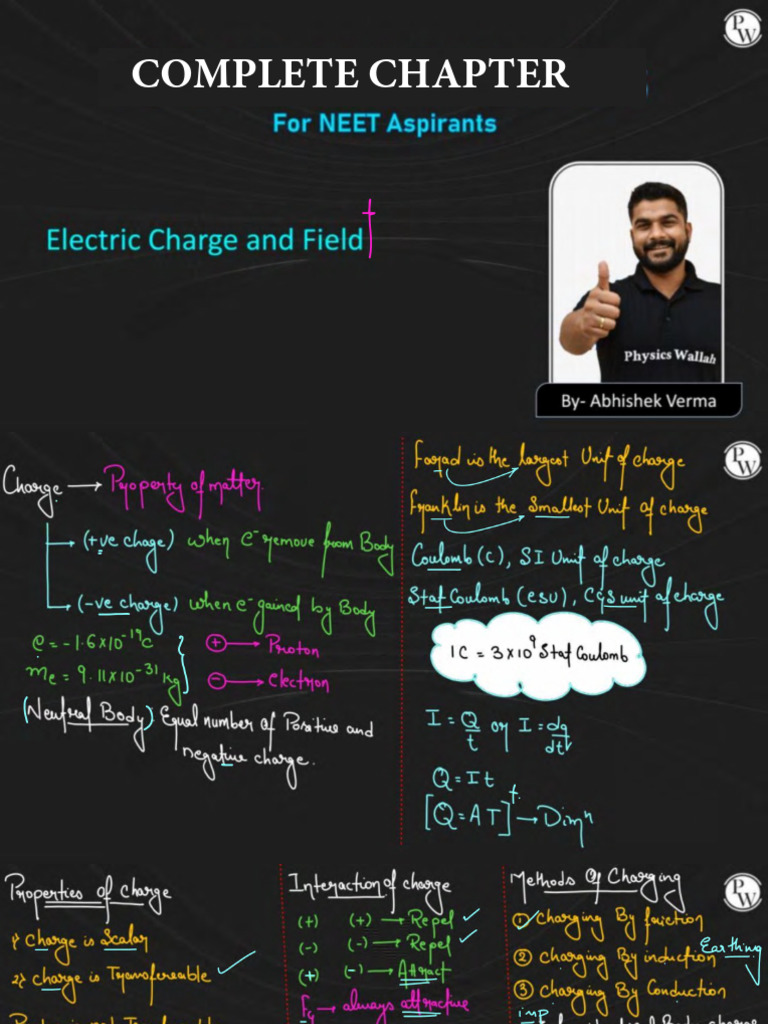 PW
COMPLETE CHAPTER
For NEET Aspirants
Electric Charge and Field
Physics Wallah
By- Abhishek Verma
PW
Charge → Property of matter.
(+ve chage) when e⁻ remove from Body
(-ve charge) when e⁻ gained by Body
e = -1.6×10⁻¹⁹C
me = 9.11×10⁻³¹ kg
⊕ → Proton
⊖ → electron
(Neutral Body) Equal number of Positive and
negative charge.
Farad is the largest Unit of charge
Franklin is the Smallest Unit of charge
Coulomb (C), SI Unit of charge
Stat Coulomb (esu), CGS unit of charge
1C = 3×10⁹ Stat Coulomb
I = Q/t or I = dq/dt
Q = It
[Q = AT] → Dimⁿ
PW
Properties of charge
1) charge is Scalar
2) charge is Transfereable
Interaction of charge
(+) (+) → Repel
(-) (-) → Repel
(+) (-) → Attract
→ always attractive
Methods Of Charging
① Charging By friction
② Charging By induction Earthing
③ Charging By Conduction
imp